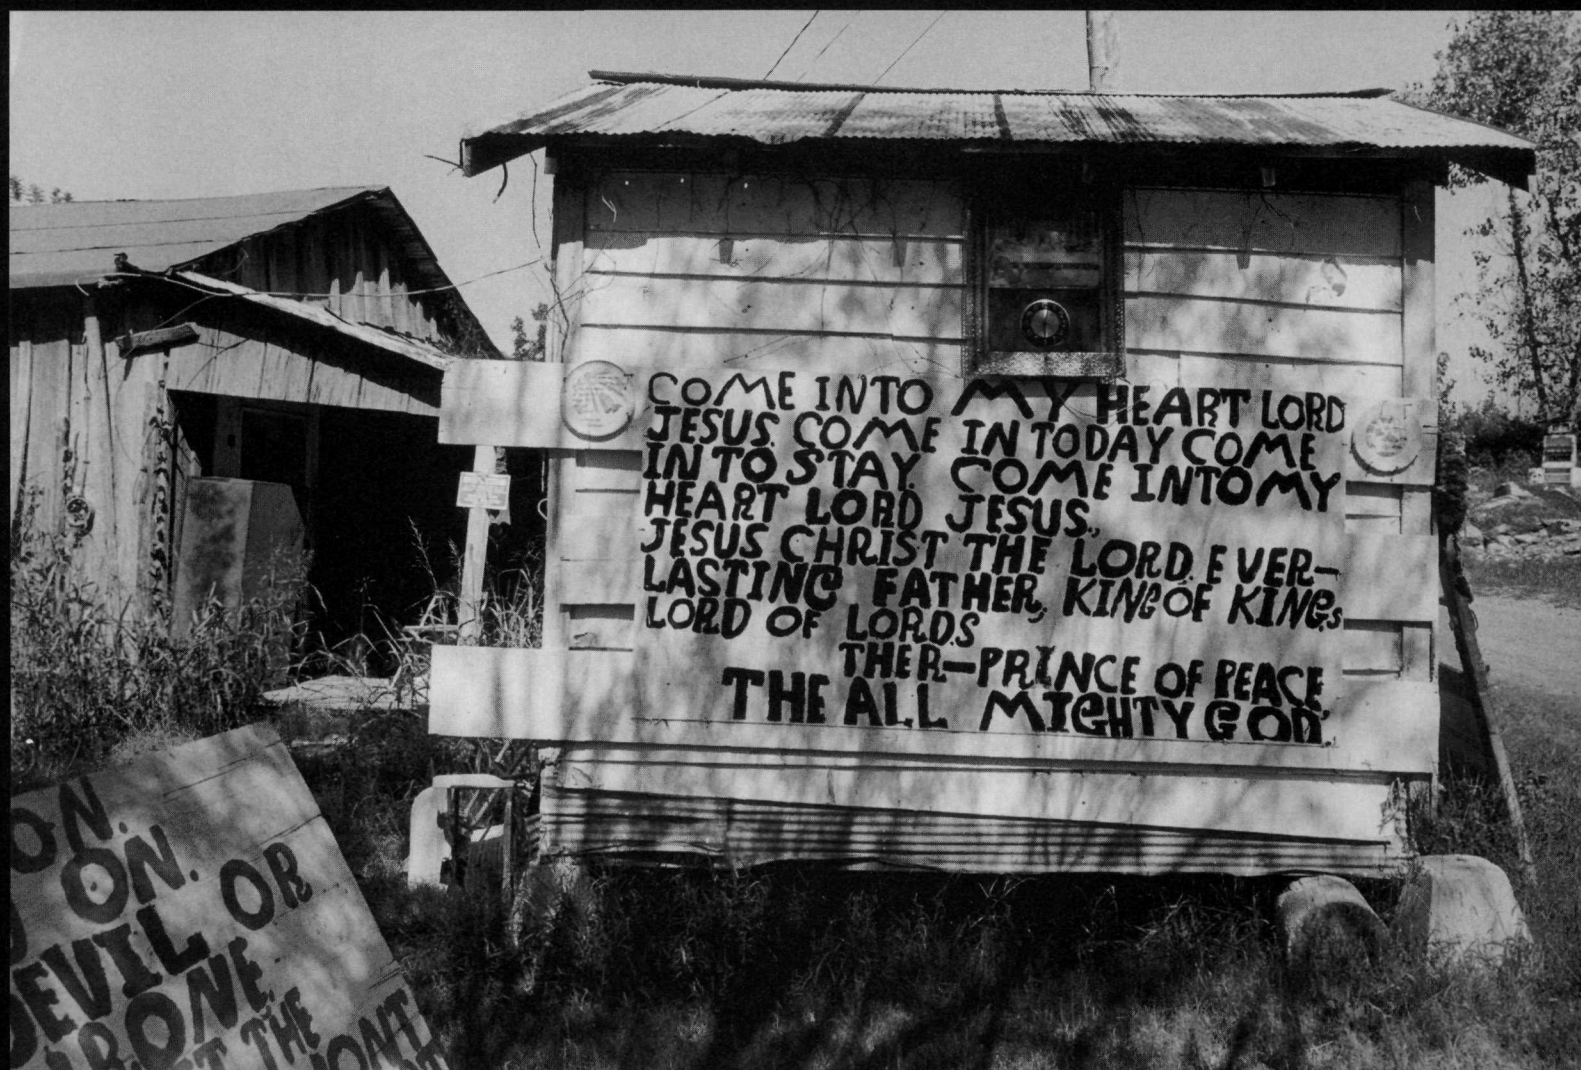 COME INTO MY HEART LORD
JESUS. COME IN TODAY COME
INTO STAY. COME INTO MY
HEART LORD JESUS.,
JESUS CHRIST THE LORD. EVER—
LASTING FATHER, KING OF KINGS
LORD OF LORDS
THER—PRINCE OF PEACE,
THE ALL MIGHTY GOD.
ON.
ON.
DEVIL OR
ONE.
THE